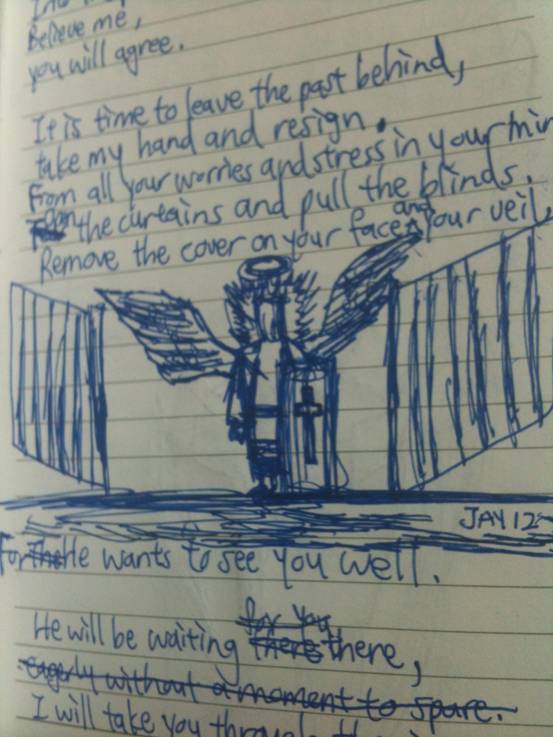 Believe me,
you will agree.
It is time to leave the past behind,
take my hand and resign.
From all your worries and stress in your
open the curtains and pull the blinds.
Remove the cover on your face and your veil,
JAY 12
For He wants to see you well.
for you
He will be waiting there there,
eagerly without a moment to spare.
I will take you through